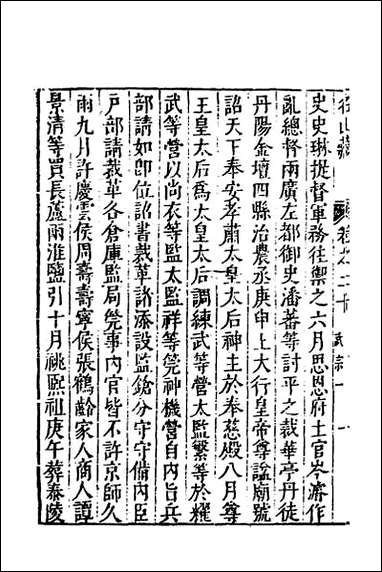 名山藏 卷之二十 武記一 一
史史琳提督軍務往禦之六月思恩府土官岑濬作
亂總督兩廣左都御史潘蕃等討平之裁華亭丹徒
丹陽金壇四縣治農丞庚申上大行皇帝尊謚廟號
詔天下奉安孝肅太皇太后神主於奉慈殿八月尊
王皇太后爲太皇太后調練武等營太監繁等於耀
武等營以尚衣等監太監祥等筦神機營自内旨兵
部請如即位詔書裁革諸添設監鎗分守守備内臣
戸部請裁革各倉庫監局筦事内官皆不許京師久
雨九月許慶雲侯周壽壽寧侯張鶴齡家人商人譚
景清等買長蘆兩淮鹽引十月祧熙祖庚午葬泰陵